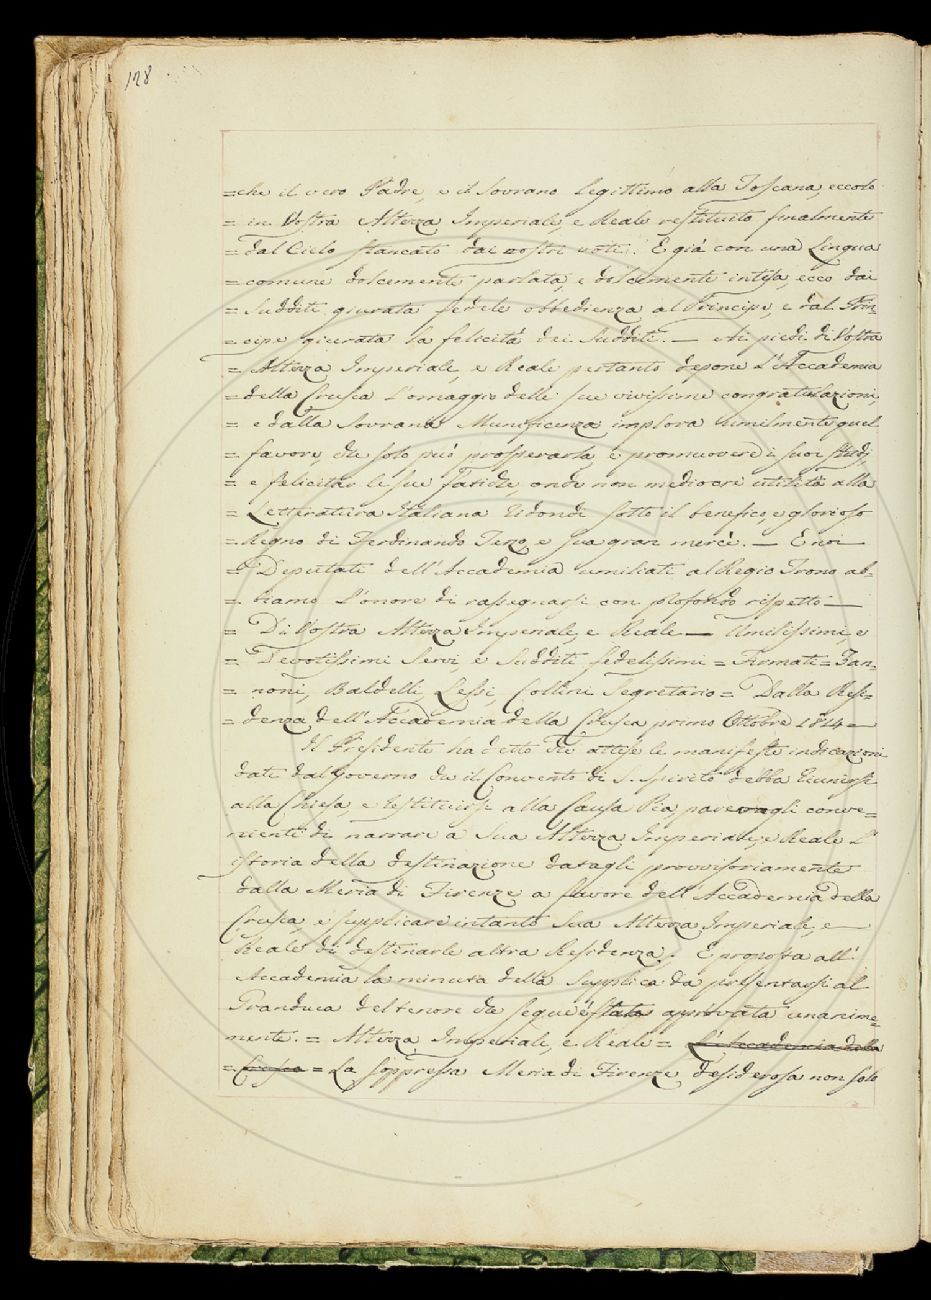 128
=che il vero Padre, e il Sovrano legittimo alla Toscana, eccolo
=in Vostra Altezza Imperiale, e Reale restituito finalmente
=dal Cielo stancato dai nostri voti. E già con una Lingua
=comune dolcemente parlata, e dolcemente intesa, ecco dai
=Sudditi giurata fedele obbedienza al Principe, e dal Prin=
=cipe giurata la felicità dei Sudditi. — Ai piedi di Vostra
=Altezza Imperiale, e Reale pertanto depone l'Accademia
=della Crusca l'omaggio delle sue vivissime congratulazioni,
=e dalla Sovrana Munificenza implora umilmente quel
=favore, che solo può prosperarla, e promuovere i suoi studj,
=e felicitar le sue fatiche, onde non mediocre utilità alla
=Letteratura Italiana ridondi sotto il benefico, e glorioso
=Regno di Ferdinando Terzo, e sua gran mercè. — E noi
=Deputati dell'Accademia umiliati al Regio Trono ab=
=biamo l'onore di rassegnarsi con profondo rispetto —
=Di Vostra Altezza Imperiale, e Reale — Umilissimi, e
=Devotissimi Servi, e Sudditi fedelissimi = Firmati = Zan=
=noni, Baldelli, Lessi, Collini Segretario = Dalla Resi=
=denza dell'Accademia della Crusca primo Ottobre 1814 =
Il Presidente ha detto che attese le manifeste indicazioni
date dal Governo che il Convento di S. Spirito debba riunirsi
alla Chiesa, e restituirsi alla Causa Pia, parevagli conve=
niente di narrare a Sua Altezza Imperiale, e Reale l'
istoria della destinazione datagli provvisoriamente
dalla Meria di Firenze a favore dell'Accademia della
Crusca e supplicare intanto Sua Altezza Imperiale, e
Reale di destinarle altra Residenza. E proposta all'
Accademia la minuta della Supplica da presentarsi al
Granduca del tenore che segue è stata approvata unanime=
mente. = Altezza Imperiale, e Reale = L'Accademia della
=Crusca = La soppressa Meria di Firenze desiderosa non solo